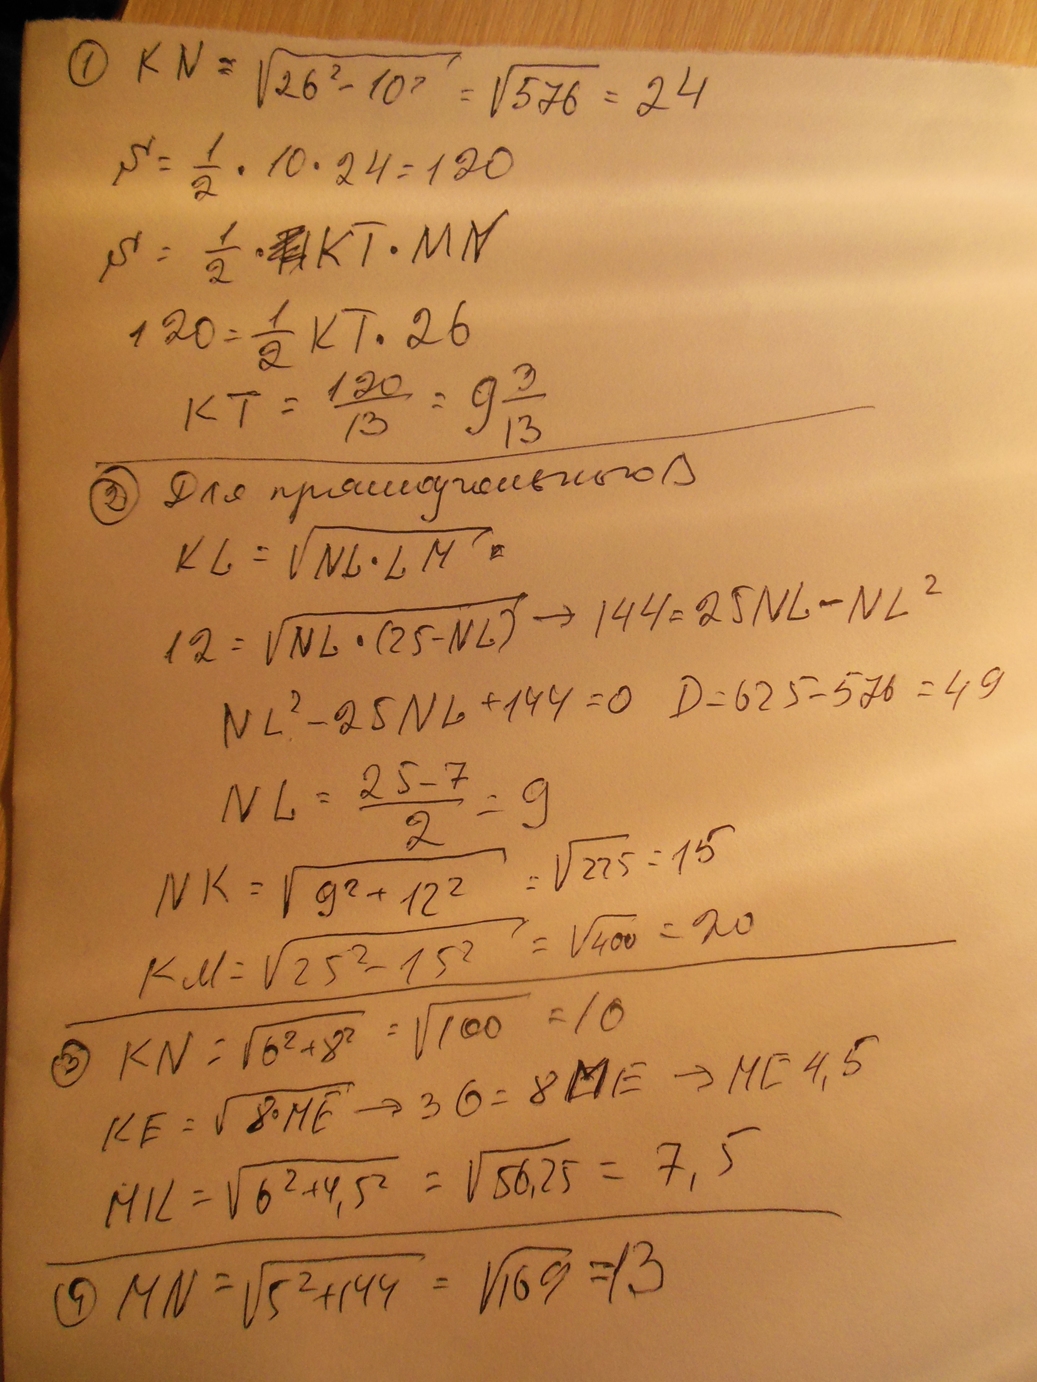 ① KN = √26²-10² = √576 = 24
S = 1/2 · 10 · 24 = 120
S = 1/2 · KT · MN
120 = 1/2 KT · 26
KT = 120/13 = 9 3/13
② Для прямоугольного Δ
KL = √NL·LM =
12 = √NL·(25-NL) → 144 = 25NL - NL²
NL² - 25NL + 144 = 0 D = 625 - 576 = 49
NL = 25-7/2 = 9
NK = √9²+12² = √225 = 15
KM = √25²-15² = √400 = 20
③ KN = √6²+8² = √100 = 10
KE = √8·ME → 36 = 8ME → ME 4,5
MK = √6²+4,5² = √56,25 = 7,5
④ MN = √5²+144 = √169 = 13